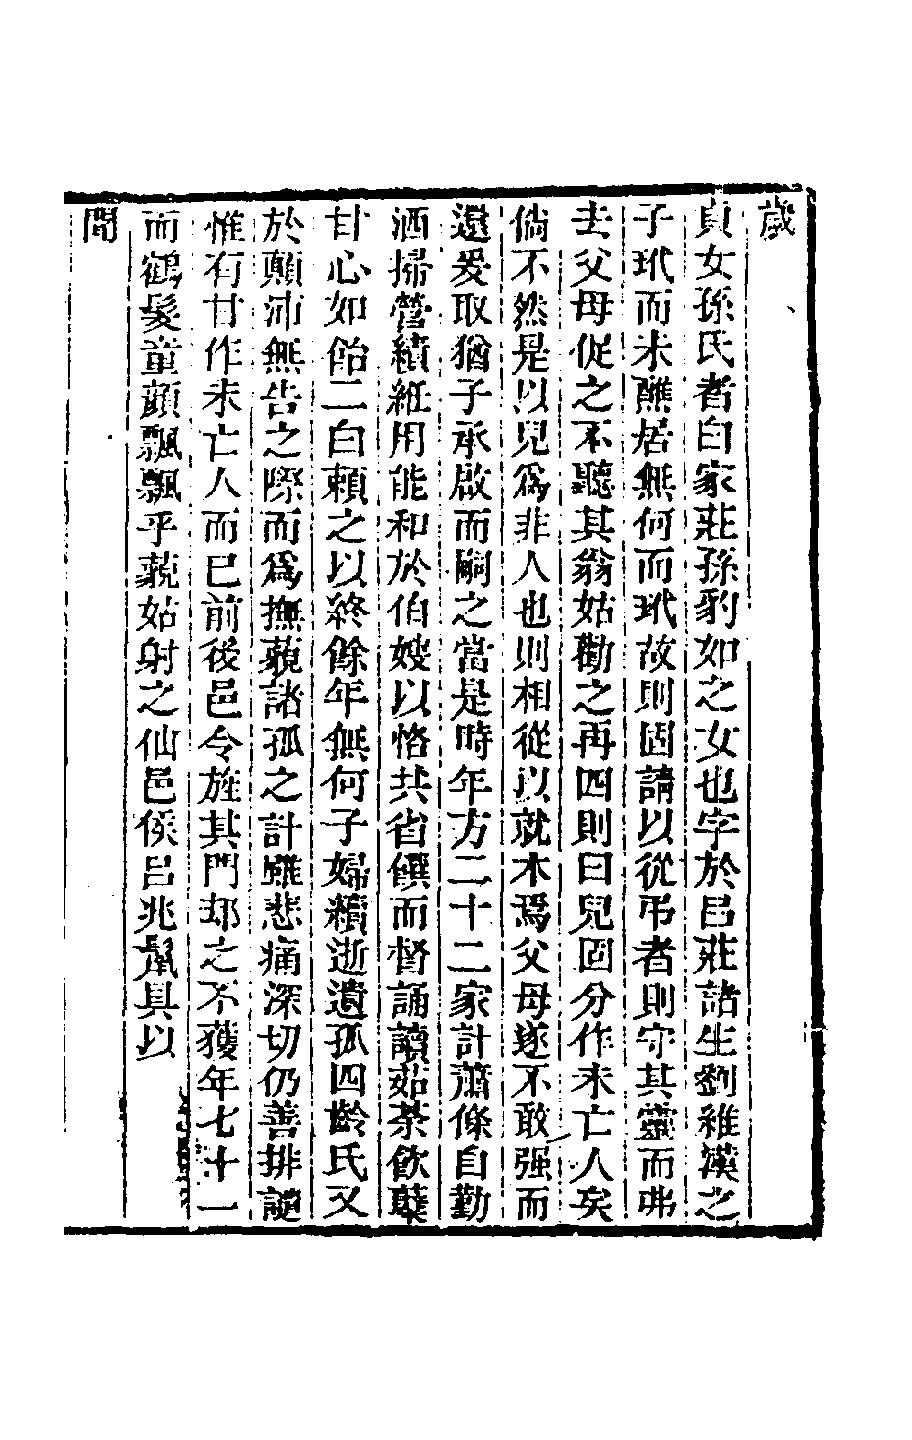 歲
貞女孫氏者白家莊孫豹如之女也字於呂莊諸生劉維漢之
子玳而未醮居無何而玳故則固請以從吊者則守其靈而弗
去父母促之不聽其翁姑勸之再四則曰兒固分作未亡人矣
倘不然是以兒爲非人也則相從以就木焉父母遂不敢强而
還爰取猶子承啟而嗣之當是時年方二十二家計蕭條自勤
洒掃營績紝用能和於伯嫂以恪共省饌而督誦讀茹荼飲蘗
甘心如飴二白頼之以終餘年無何子婦續逝遺孤四齡氏又
於顛沛無告之際而爲撫藐諸孤之計雖悲痛深切仍善排譴
惟有甘作未亡人而已前後邑令旌其門却之不獲年七十一
而鶴髮童顔飄飄乎藐姑射之仙邑侯呂兆鬗具以
聞